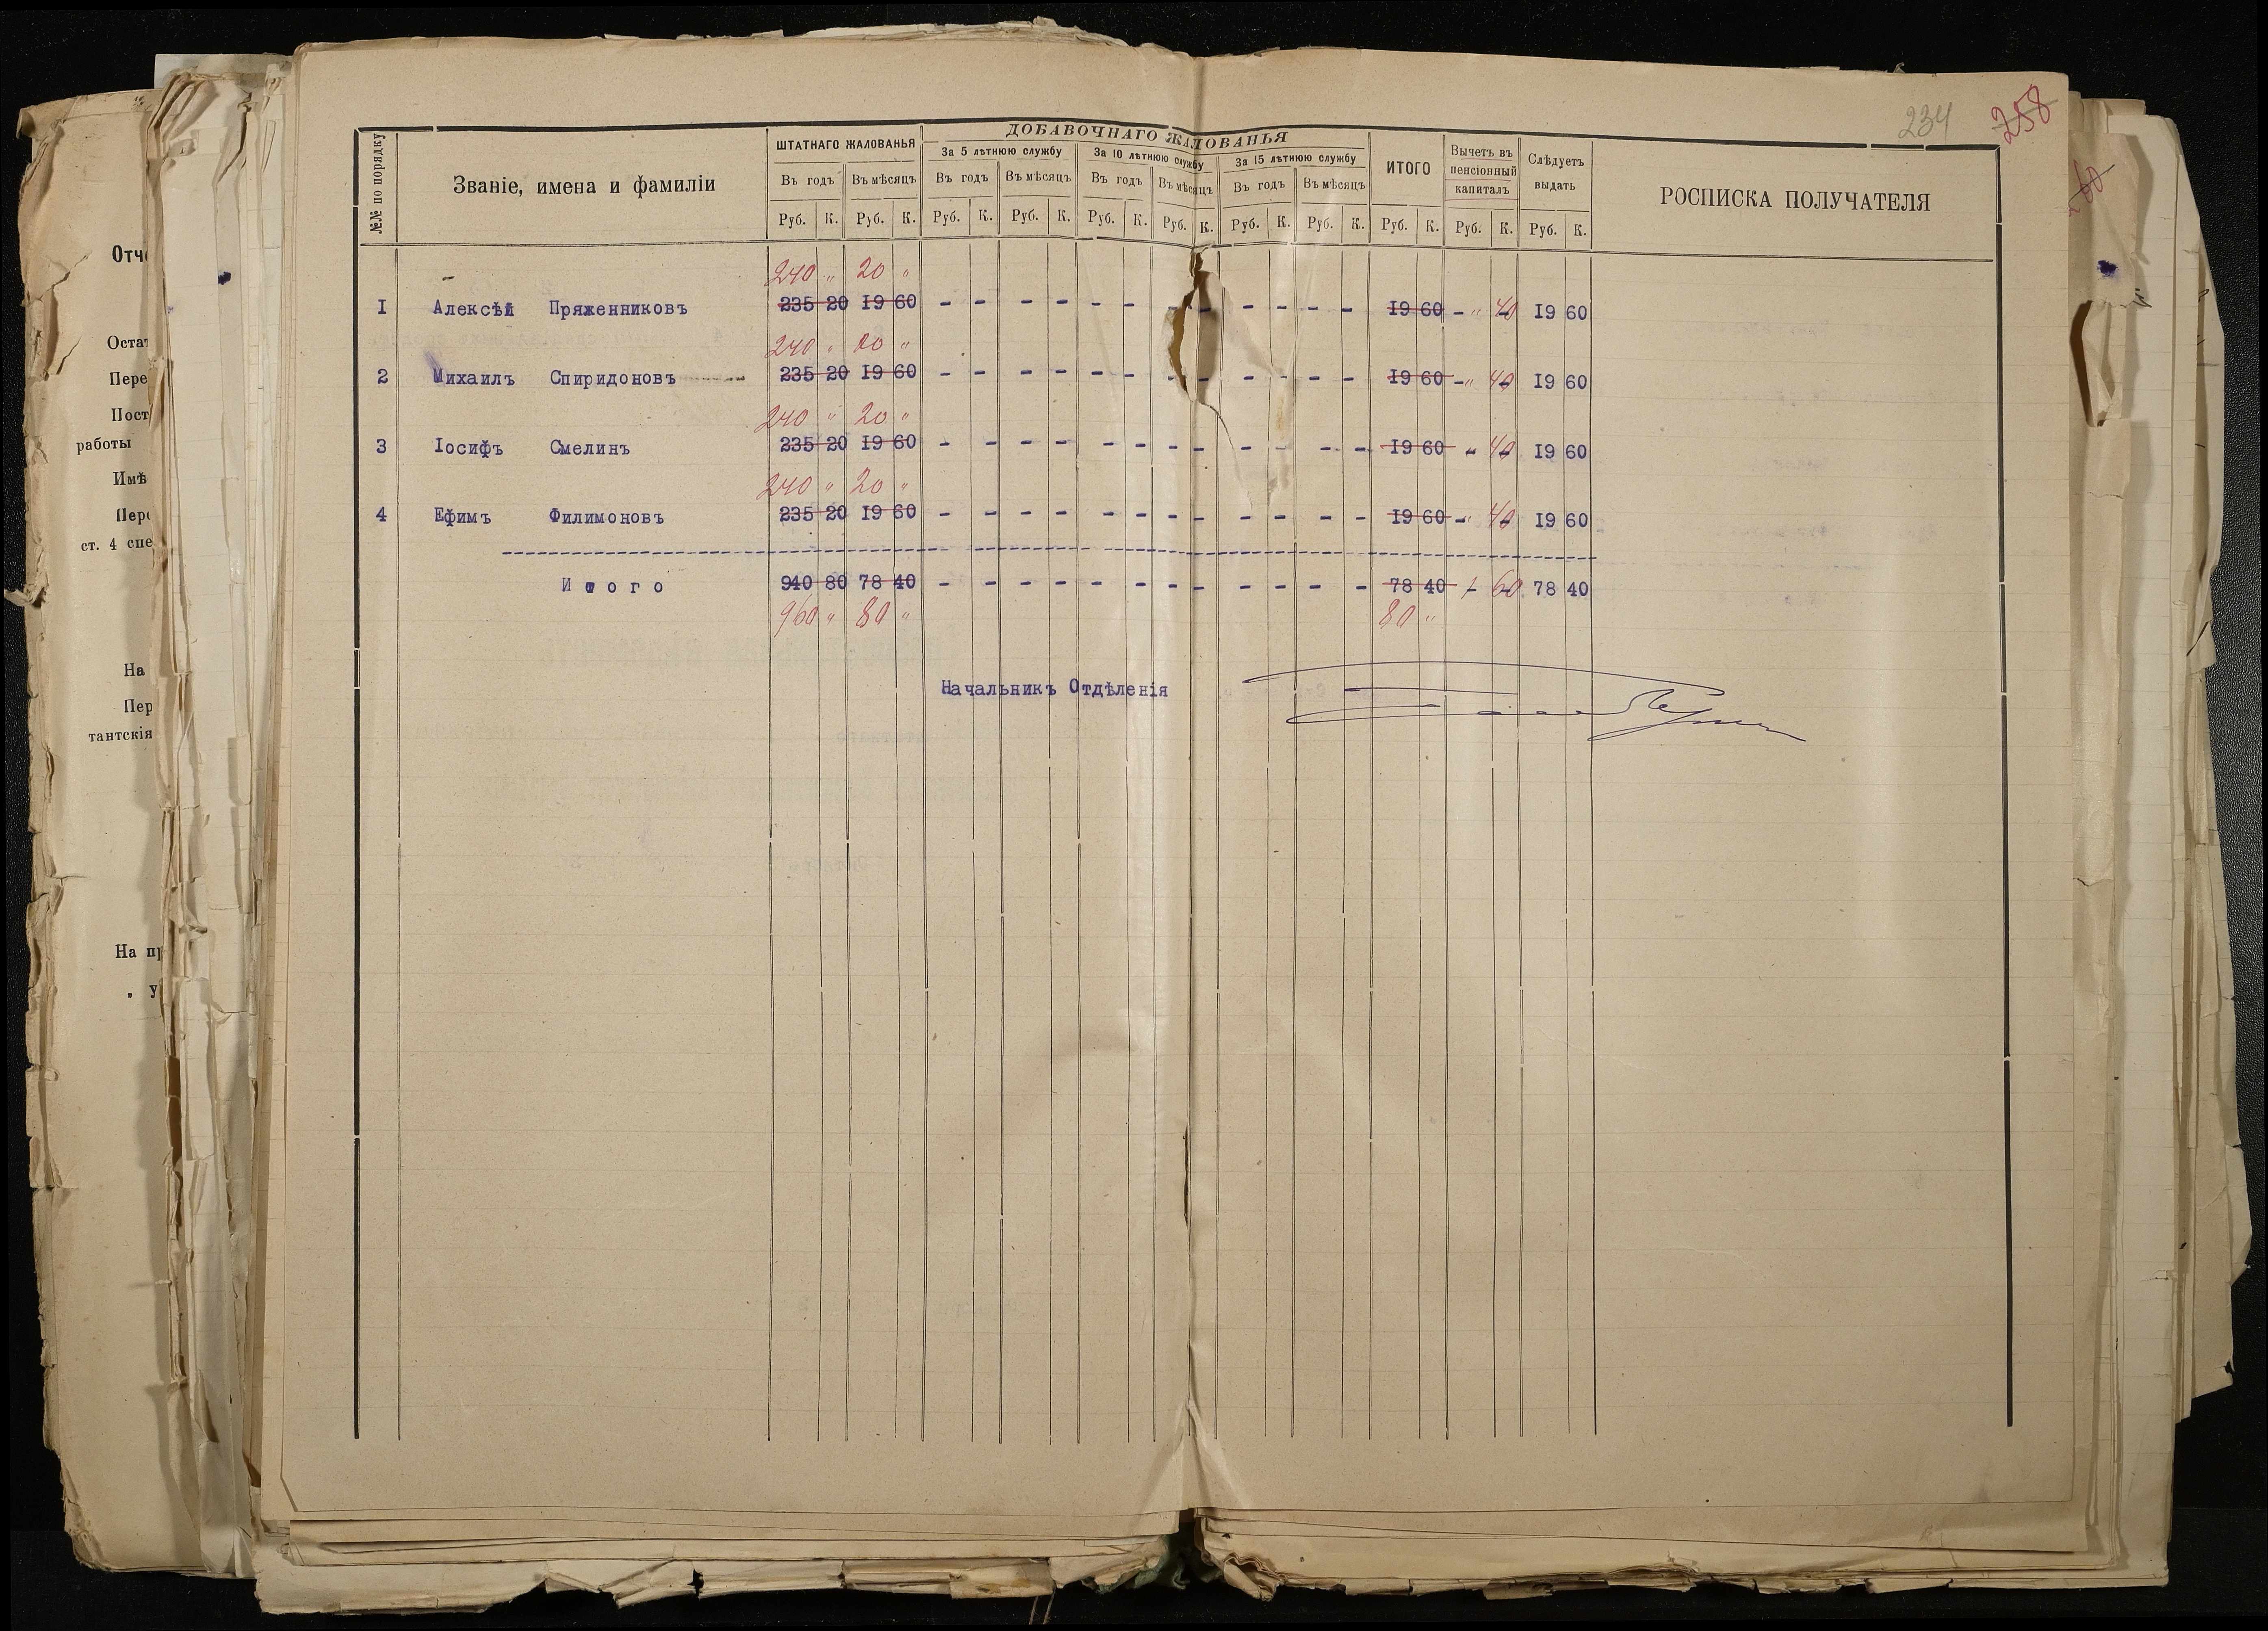 234 258
ДОБАВОЧНАГО ЖАЛОВАНЬЯ
№№ по порядку Званіе, имена и фамиліи ШТАТНАГО ЖАЛОВАНЬЯ За 5 лѣтнюю службу За 10 лѣтнюю службу За 15 лѣтнюю службу ИТОГО Вычетъ въ пенсіонный капиталъ Слѣдуетъ выдать РОСПИСКА ПОЛУЧАТЕЛЯ
Въ годъ Въ мѣсяцъ Въ годъ Въ мѣсяцъ Въ годъ Въ мѣсяцъ Въ годъ Въ мѣсяцъ
Руб. К. Руб. К. Руб. К. Руб. К. Руб. К. Руб. К. Руб. К. Руб. К. Руб. К. Руб. К. Руб. К.
240 " 20 "
I Алексѣй Пряженниковъ 235 20 I9 60 - - - - - - - - - - - - I9 60 - " 40 I9 60
240 " 20 "
2 Михаилъ Спиридоновъ 235 20 I9 60 - - - - - - - - - - - - I9 60 - " 40 I9 60
240 " 20 "
3 Іосифъ Смелинъ 235 20 I9 60 - - - - - - - - - - - - I9 60 " 40 I9 60
240 " 20 "
4 Ефимъ Филимоновъ 235 20 I9 60 - - - - - - - - - - - - I9 60 - " 40 I9 60
Итого 940 80 78 40 - - - - - - - - - - - - 78 40 1 60 78 40
960 " 80 " 80 "
Начальникъ Отдѣленія
Отч
Остат
Пере
Пост
работы
Имѣ
Пере
ст. 4 спе
На
Пер
тантскія
На пр
„ у